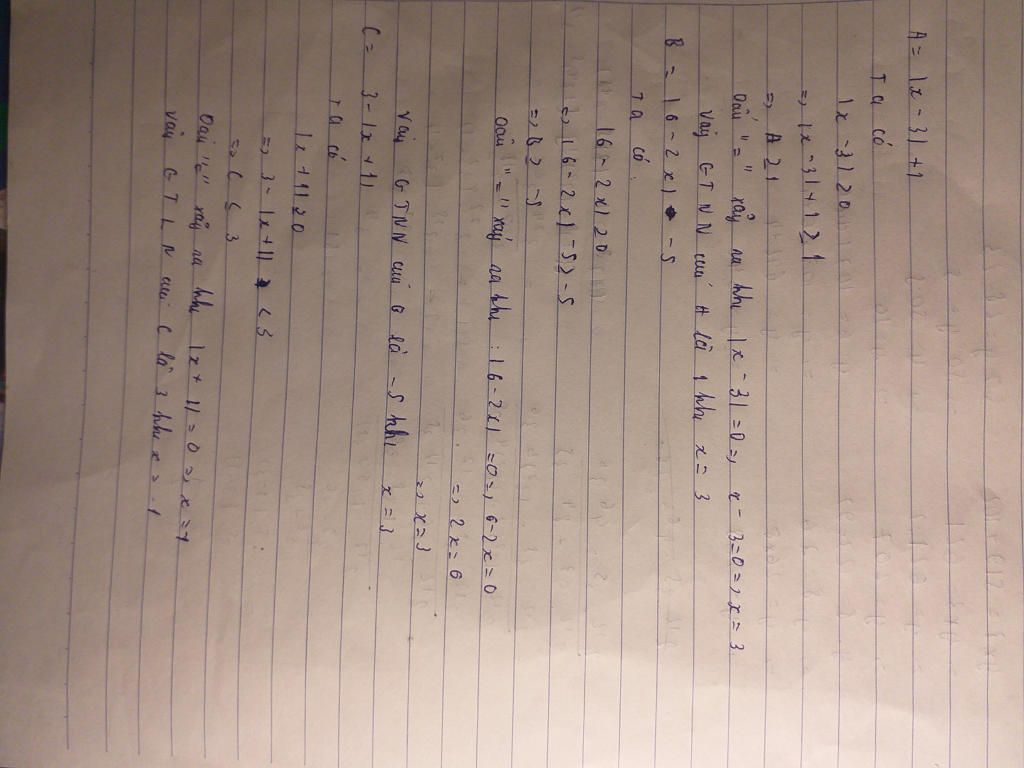 A = |x - 3| + 1
Ta có
|x - 3| ≥ 0
=> |x - 3| + 1 ≥ 1
=> A ≥ 1
Dấu "=" xảy ra khi |x - 3| = 0 => x - 3 = 0 => x = 3
Vậy GTNN của A là 1 khi x = 3
B = |6 - 2x| - 5
Ta có
|6 - 2x| ≥ 0
=> |6 - 2x| - 5 ≥ - 5
=> B ≥ - 5
Dấu "=" xảy ra khi : |6 - 2x| = 0 => 6 - 2x = 0
=> 2x = 6
=> x = 3
Vậy GTNN của B là - 5 khi x = 3
C = 3 - |x + 1|
Ta có
|x + 1| ≥ 0
=> 3 - |x + 1| < 3
=> C ≤ 3
Dấu "=" xảy ra khi |x + 1| = 0 => x = -1
Vậy GTLN của C là 3 khi x = -1